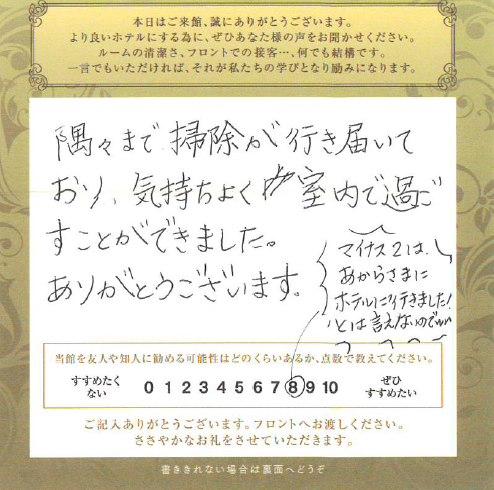 本日はご来館、誠にありがとうございます。
より良いホテルにする為に、ぜひあなた様の声をお聞かせください。
ルームの清潔さ、フロントでの接客…、何でも結構です。
一言でもいただければ、それが私たちの学びとなり励みになります。
隅々まで掃除が行き届いて
おり、気持ちよく室内で過ご
すことができました。
ありがとうございます。
マイナス2は、
あからさまに
ホテルに行きました!
とは言えないので
当館を友人や知人に勧める可能性はどのくらいあるか、点数で教えてください。
すすめたくない 0 1 2 3 4 5 6 7 8 9 10 ぜひすすめたい
ご記入ありがとうございます。フロントへお渡しください。
ささやかなお礼をさせていただきます。
書ききれない場合は裏面へどうぞ